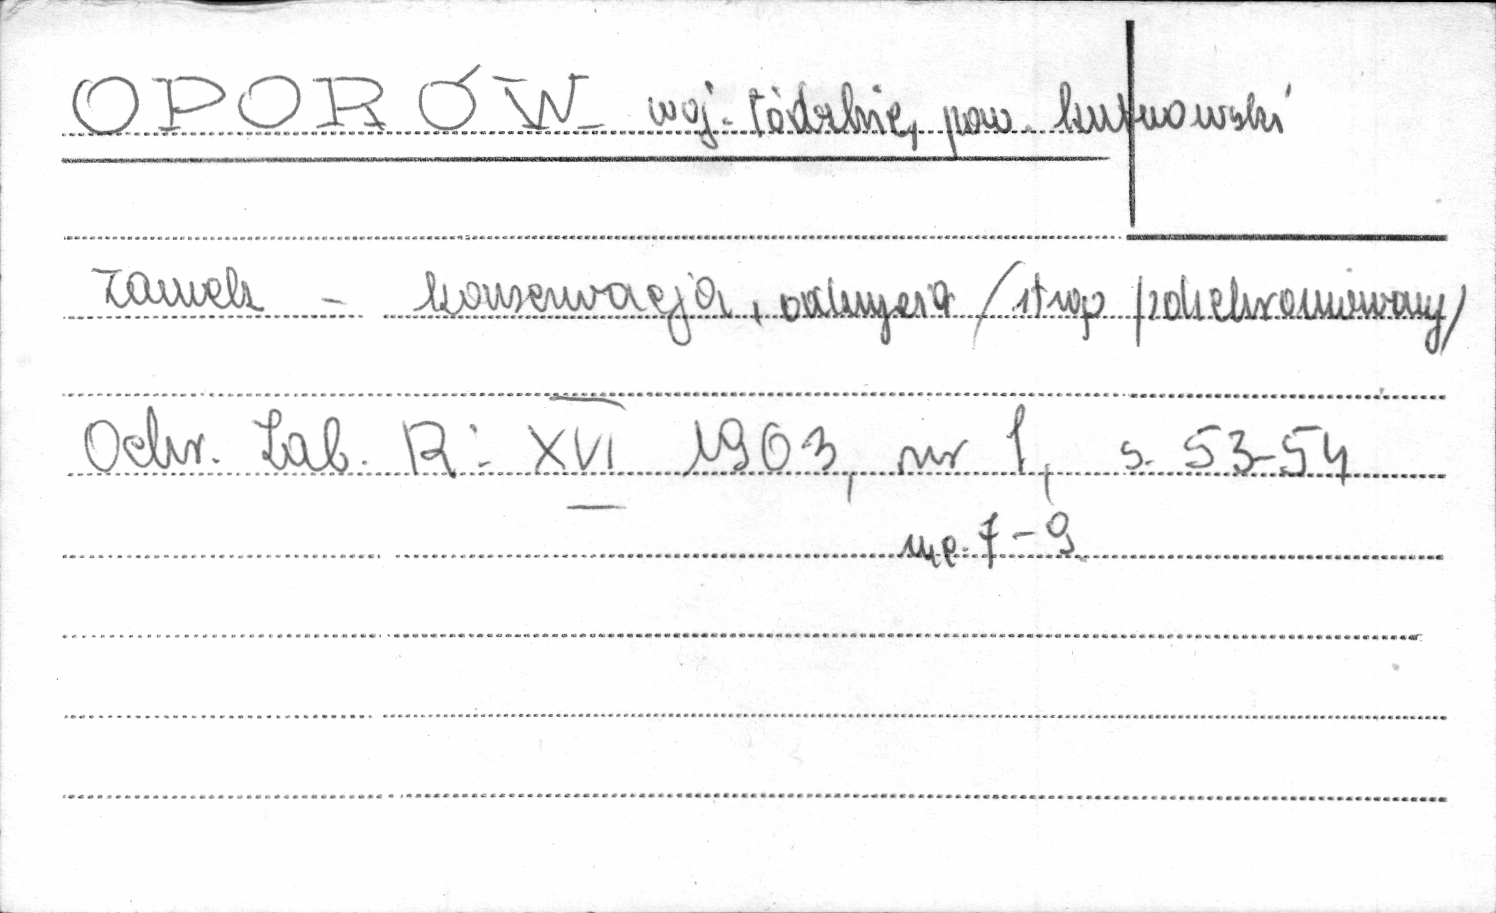 OPORÓW woj. łódzkie, pow. kutnowski
Zamek – konserwacja, odkrycia /strop polichromowany/
Ochr. Zab. R: XVI 1963, nr 1, s. 53-54
ryc. 7-9